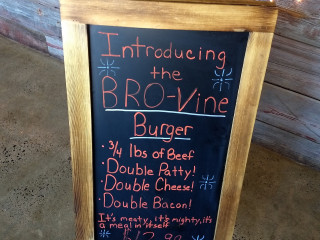 Introducing
the
BRO-Vine
Burger
· 3/4 lbs of Beef
· Double Patty!
· Double Cheese!
· Double Bacon!
It's meaty, it's mighty, it's
a meal in itself